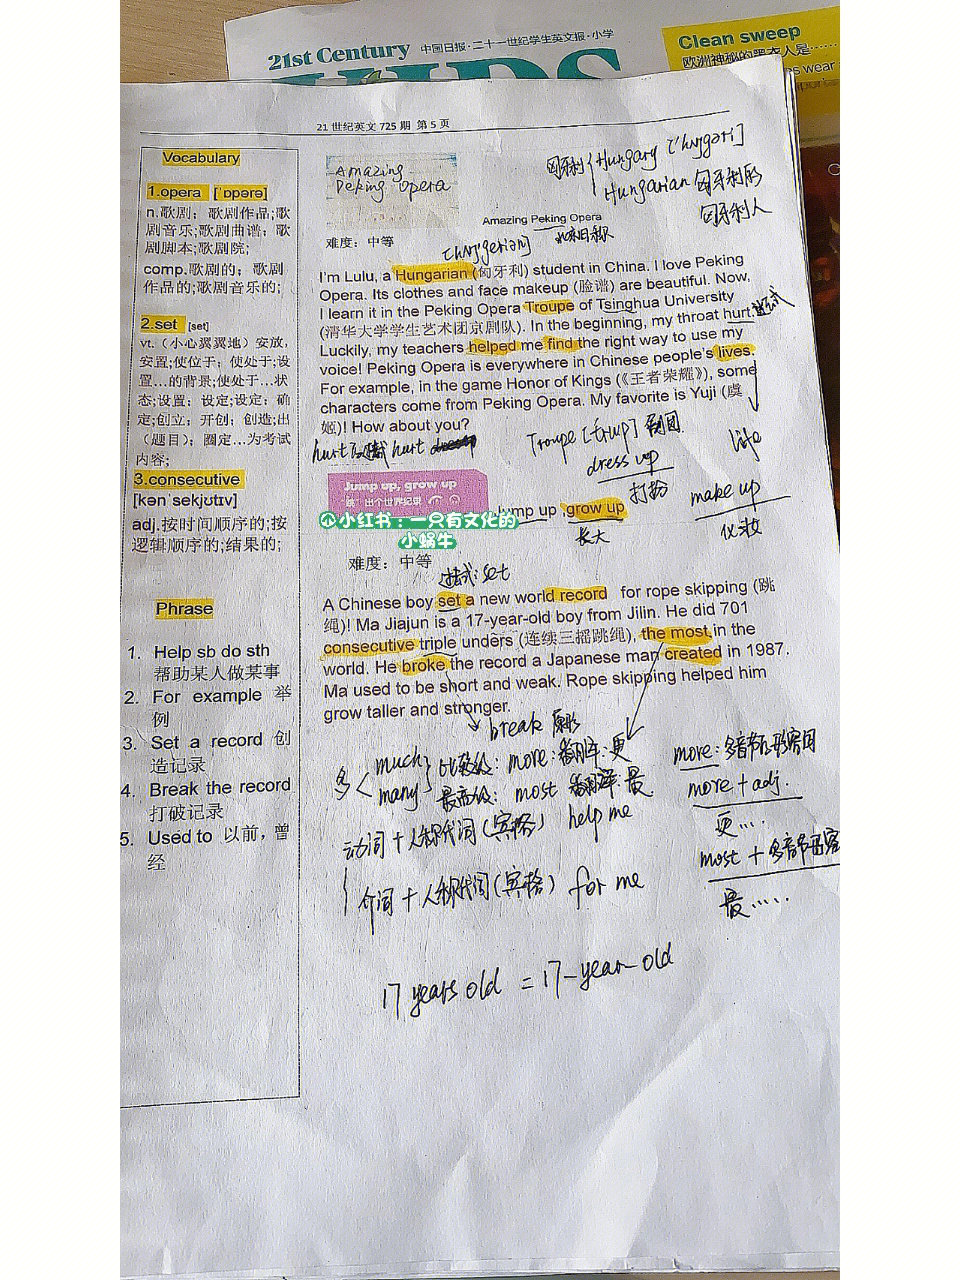 21st Century 中国日报·二十一世纪学生英文报·小学
KIDS
Clean sweep
欧洲神秘的黑衣人是……
wear
21世纪英文 725 期 第 5 页
Vocabulary
1.opera [ˈɒpərə]
n.歌剧；歌剧作品;歌
剧音乐;歌剧曲谱；歌
剧脚本;歌剧院;
comp.歌剧的；歌剧
作品的;歌剧音乐的;
2.set [set]
vt.（小心翼翼地）安放，
安置;使位于；使处于;设
置…的背景;使处于…状
态;设置；设定;设定；确
定;创立；开创；创造;出
（题目）；圈定…为考试
内容;
3.consecutive
[kənˈsekjʊtɪv]
adj.按时间顺序的;按
逻辑顺序的;结果的;
Phrase
1. Help sb do sth
帮助某人做某事
2. For example 举
例
3. Set a record 创
造记录
4. Break the record
打破记录
5. Used to 以前，曾
经
Amazing
Peking Opera
匈牙利 Hungary [ˈhʌŋgəri]
Hungarian 匈牙利的
匈牙利人
Amazing Peking Opera
北京旧称
难度：中等
[hʌŋˈgeriən]
I'm Lulu, a Hungarian (匈牙利) student in China. I love Peking
Opera. Its clothes and face makeup (脸谱) are beautiful. Now,
I learn it in the Peking Opera Troupe of Tsinghua University
(清华大学学生艺术团京剧队). In the beginning, my throat hurt. 过去式
Luckily, my teachers helped me find the right way to use my
voice! Peking Opera is everywhere in Chinese people's lives.
For example, in the game Honor of Kings (《王者荣耀》), some
characters come from Peking Opera. My favorite is Yuji (虞
姬)! How about you?
hurt 过去式 hurt
Troupe [trup] 剧团
life
dress up
打扮
make up
化妆
Jump up, grow up
跳出个世界纪录
jump up ,grow up
长大
小红书：一只有文化的
小蜗牛
难度：中等
过去式: set
A Chinese boy set a new world record for rope skipping (跳
绳)! Ma Jiajun is a 17-year-old boy from Jilin. He did 701
consecutive triple unders (连续三摇跳绳), the most in the
world. He broke the record a Japanese man created in 1987.
Ma used to be short and weak. Rope skipping helped him
grow taller and stronger.
break 原形
多 much many
比较级：more：翻译：更
最高级：most 翻译：最
more：多音节形容词
more + adj.
更……
most + 多音节形容
最……
动词 + 人称代词（宾格） help me
介词 + 人称代词（宾格） for me
17 years old = 17-year-old